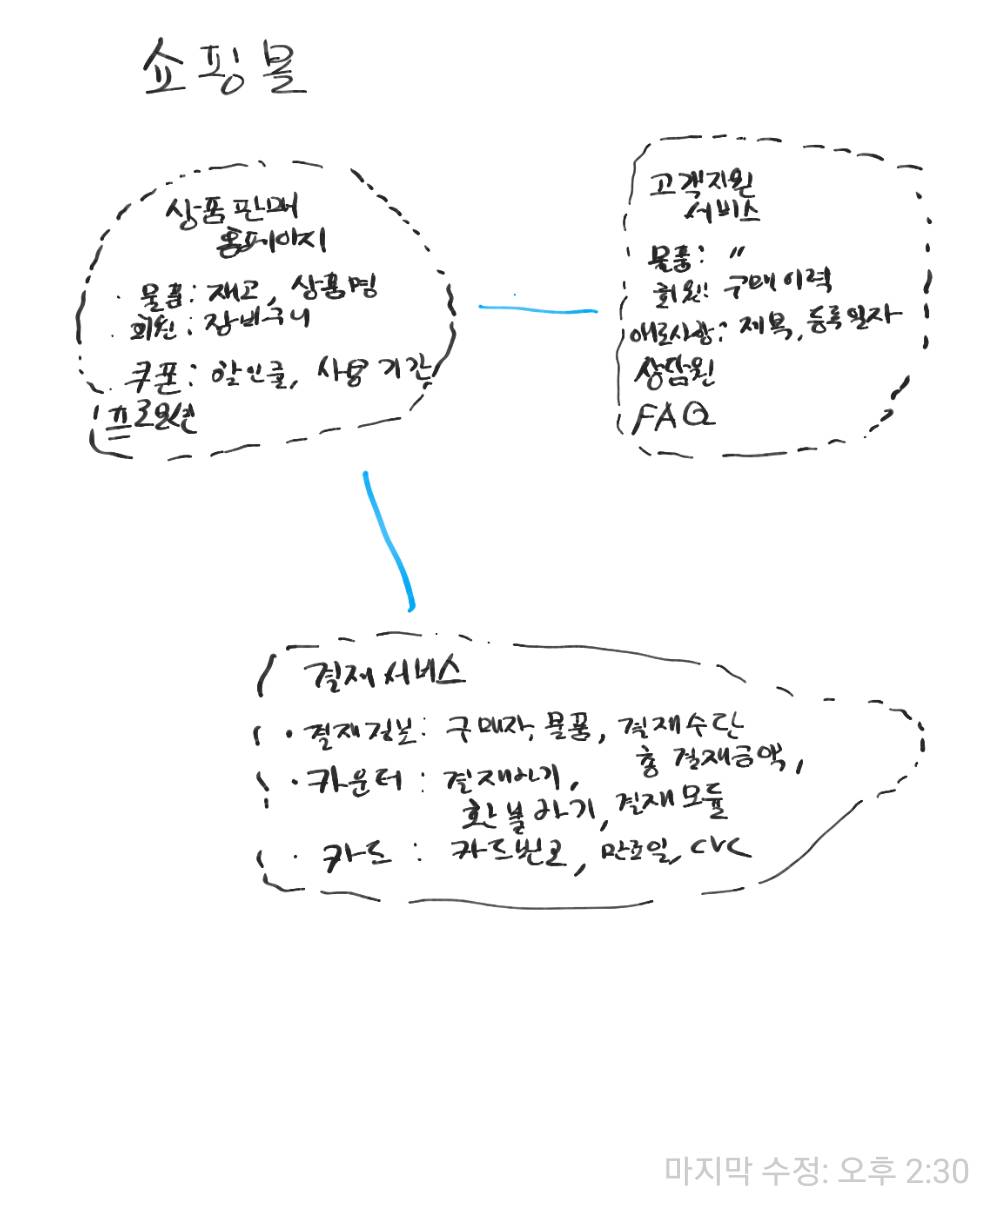 쇼핑몰
상품판매
홈페이지
· 물품: 재고, 상품명
· 회원: 장바구니
쿠폰: 할인율, 사용기간
프로모션
고객지원
서비스
물품: 〃
회원: 구매이력
애로사항: 제목, 등록일자
상담원
FAQ
결재서비스
· 결재정보: 구매자, 물품, 결재수단
총 결재금액,
· 카운터: 결재하기,
환불하기, 결재모듈
· 카드: 카드번호, 만료일, CVC
마지막 수정: 오후 2:30